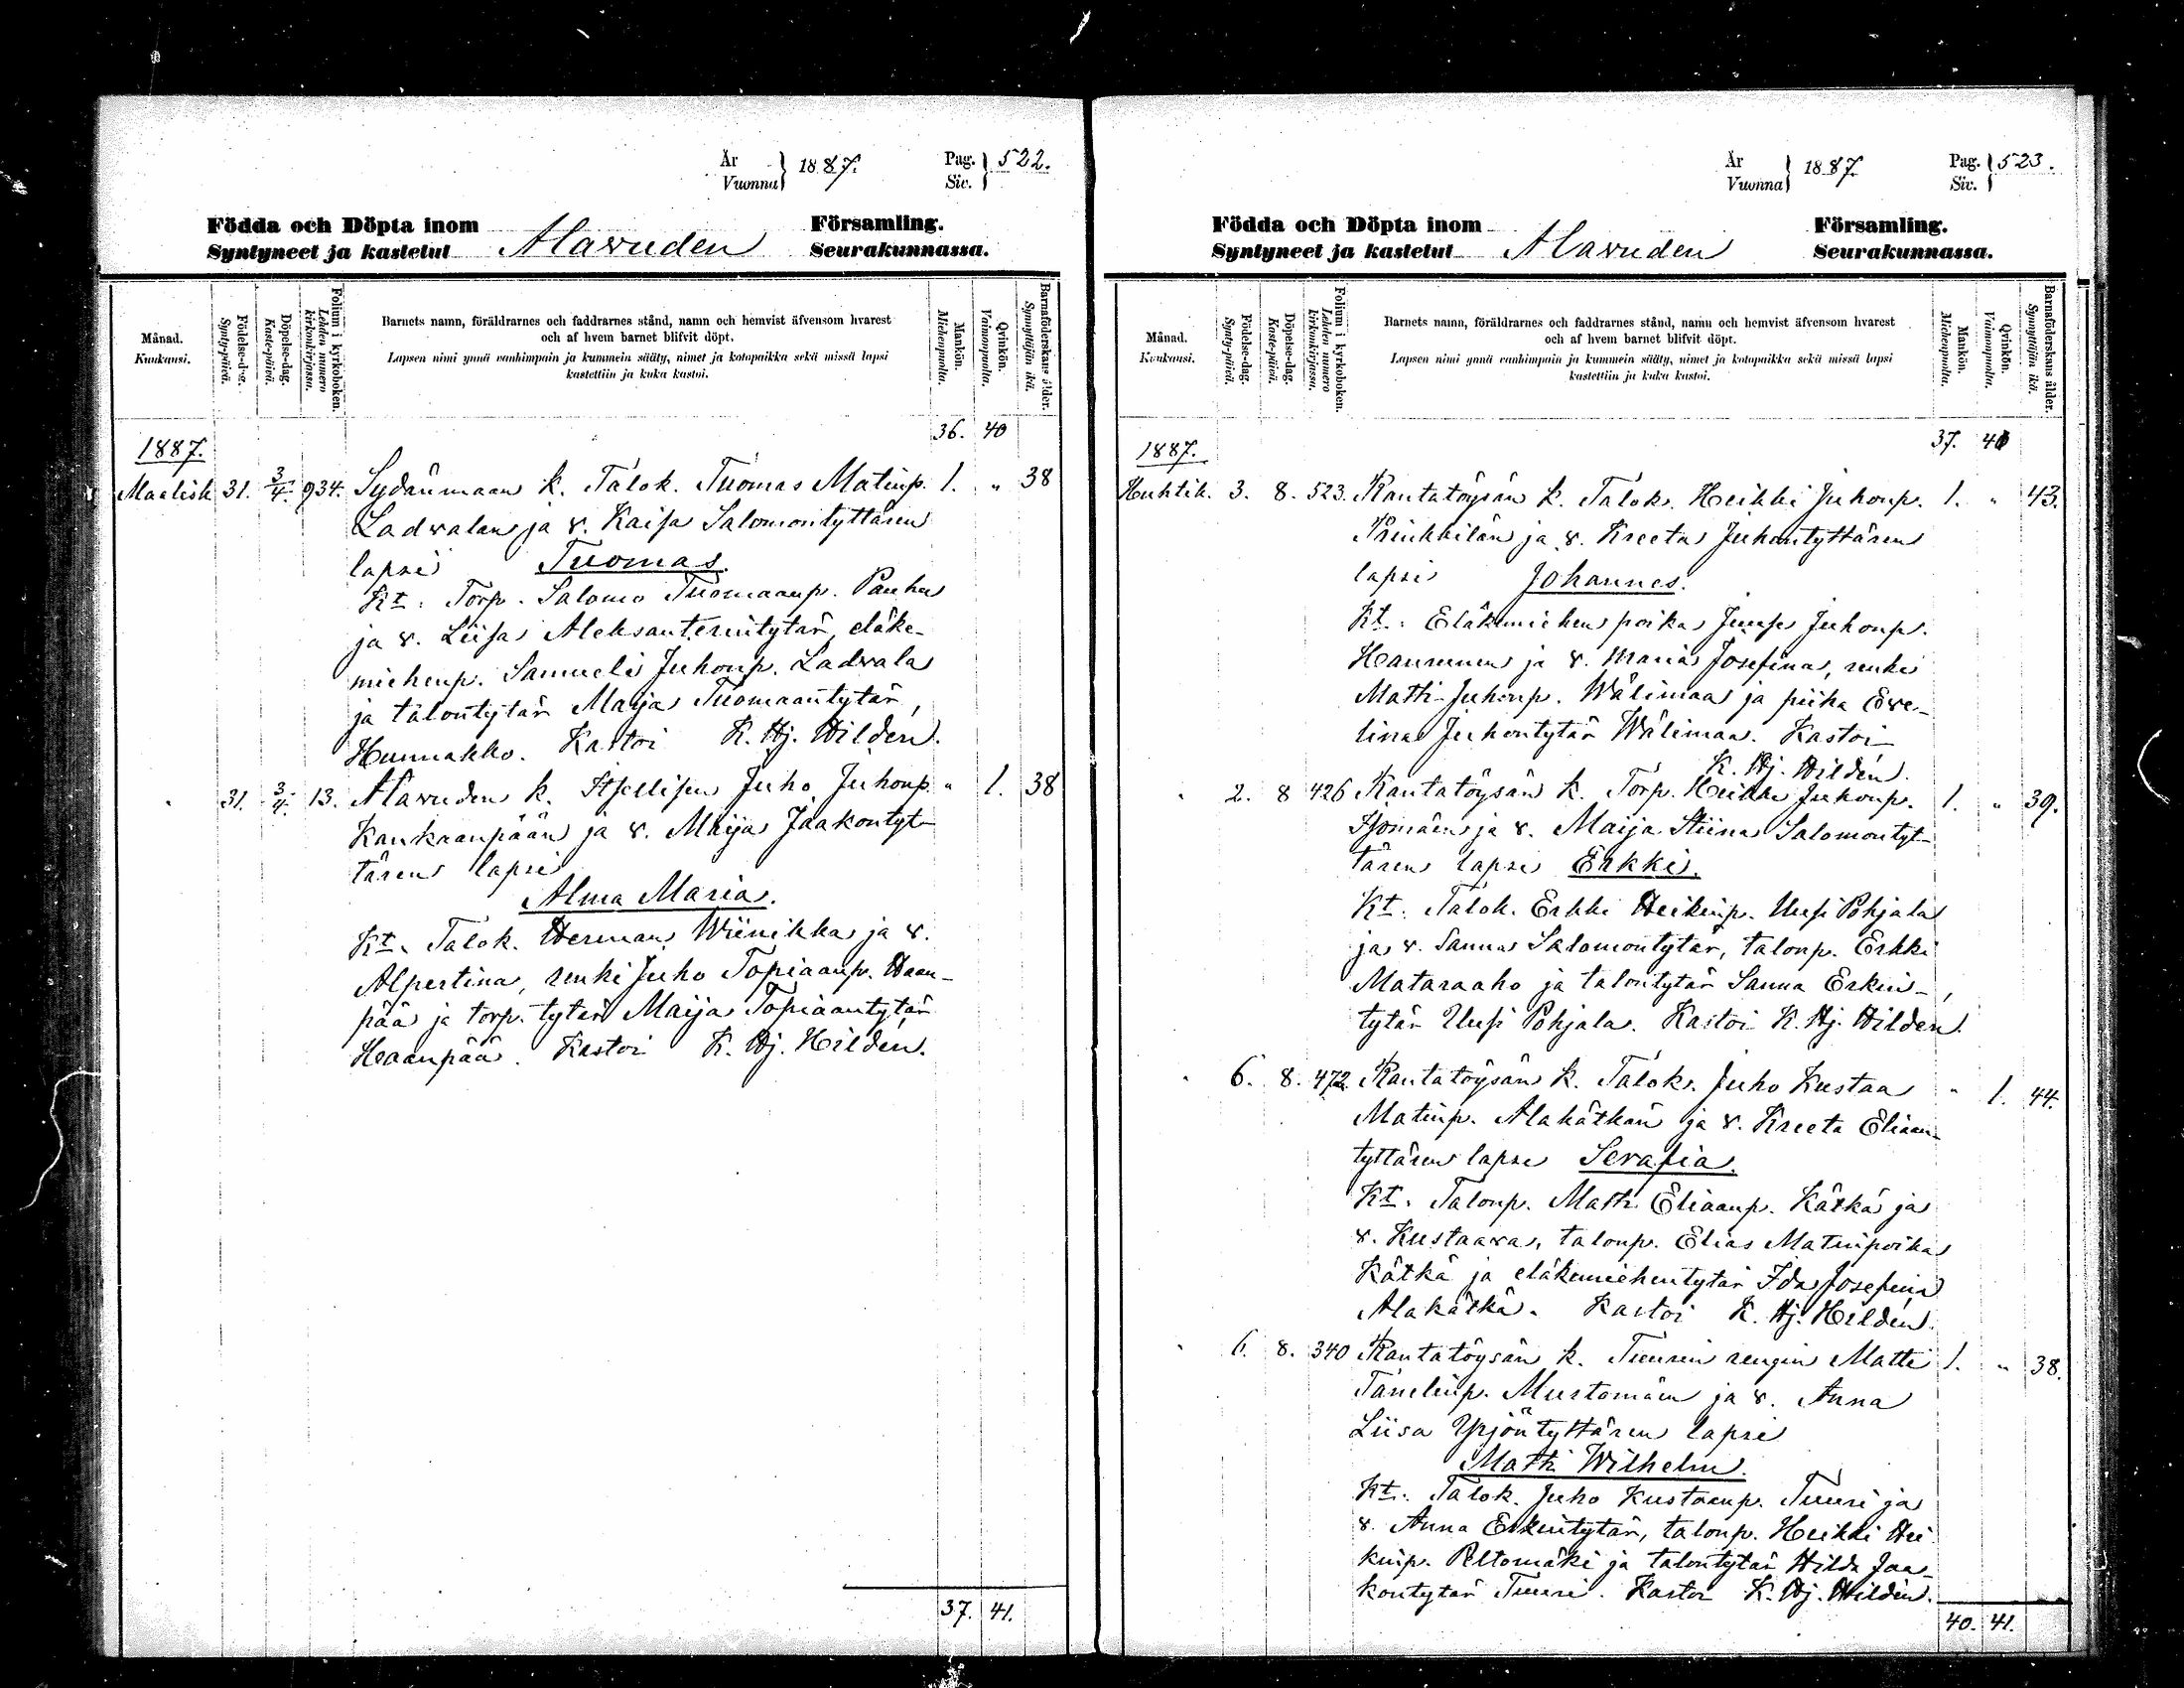 År
Vuonna
1887.
Pag.
Siv.
522.
Födda och Döpta inom
Syntyneet ja kastetut
Alavuden
Församling.
Seurakunnassa.
Månad.
Kuukausi.
Födelse-dag.
Synty-päivä.
Döpelse-dag.
Kaste-päivä.
Folium i kyrkoboken.
Lehden numero kirkonkirjassa.
Barnets namn, föräldrarnes och faddrarnes stånd, namn och hemvist äfvensom hvarest
och af hvem barnet blifvit döpt.
Lapsen nimi ynnä vanhimpain ja kummein sääty, nimet ja kotopaikka sekä missä lapsi
kastettiin ja kuka kastoi.
Mankön.
Miehenpuolta.
Qvinkön.
Vaimonpuolta.
Barnaföderskans ålder.
Synnyttäjän ikä.
36. 40
1887.
Maalisk 31. 3/4. 934. Sydänmaan k. Talok. Tuomas Matinp. 1. " 38
Ladvalan ja v. Kaisa Salomontyttären
lapsi Tuomas.
Kt. Torp. Salomo Tuomaanp. Panhu
ja v. Liisa Aleksanterintytär, eläke-
miehenp. Samueli Juhonp. Ladvala
ja talontytär Maija Tuomaantytär,
Hunnakko. Kastoi K. Hj. Hildén.
" 31. 3/4. 13. Alavuden k. Itsellisen Juho Juhonp. " 1. 38
Kankaanpään ja v. Maija Jaakontyt-
tären lapsi
Alma Maria.
Kt. Talok. Herman Wiinikka ja v.
Alpertina, renki Juho Topiaanp. Haan-
pää ja torp. tytär Maija Topiaantytär
Haanpää. Kastoi K. Hj. Hildén.
37. 41.
År
Vuonna
1887.
Pag.
Siv.
523.
Födda och Döpta inom
Syntyneet ja kastetut
Alavuden
Församling.
Seurakunnassa.
Månad.
Kuukausi.
Födelse-dag.
Synty-päivä.
Döpelse-dag.
Kaste-päivä.
Folium i kyrkoboken.
Lehden numero kirkonkirjassa.
Barnets namn, föräldrarnes och faddrarnes stånd, namn och hemvist äfvensom hvarest
och af hvem barnet blifvit döpt.
Lapsen nimi ynnä vanhimpain ja kummein sääty, nimet ja kotopaikka sekä missä lapsi
kastettiin ja kuka kastoi.
Mankön.
Miehenpuolta.
Qvinkön.
Vaimonpuolta.
Barnaföderskans ålder.
Synnyttäjän ikä.
37. 41
1887.
Huhtik. 3. 8. 523. Rantatöysän k. Talok. Heikki Juhonp. 1. " 43.
Prinkkilän ja v. Kreeta Juhontyttären
lapsi Johannes.
Kt. Eläkmiehen poika Juha Juhonp.
Hannunen ja v. Maria Josefina, renki
Matti Juhonp. Wälimaa ja piika Eve-
lina Juhontytär Wälimaa. Kastoi
K. Hj. Hildén.
" 2. 8 426 Rantatöysän k. Torp. Heikki Juhonp. 1. " 39.
Isomäen ja v. Maija Stiina Salomontyt-
tären lapsi Erkki.
Kt. Talok. Erkki Heikinp. Uusi Pohjala
ja v. Sanna Salomontytär, talonp. Erkki
Mataraaho ja talontytär Sanna Erkin-
tytär Uusi Pohjala. Kastoi K. Hj. Hildén.
" 6. 8. 472 Rantatöysän k. Talok. Juho Kustaa " 1. 44.
Matinp. Alakätkän ja v. Kreeta Eliaan-
tyttären lapsi Serafia.
Kt. Talonp. Matti Eliaanp. Kätkä ja
v. Kustaava, talonp. Elias Matinpoika
Kätkä ja eläkemiehentytär Ida Josefina
Alakätkä. Kastoi K. Hj. Hildén.
" 6. 8. 340 Rantatöysän k. Tuurin rengin Matti 1. " 38.
Tanelinp. Mustamäen ja v. Anna
Liisa Yrjöntyttären lapsi
Matti Wilhelm.
Kt. Talok. Juho Kustaanp. Tuuri ja
v. Anna Erkintytär, talonp. Heikki Hei-
kinp. Peltomäki ja talontytär Hilda Jaa-
kontytär Tuuri. Kastoi K. Hj. Hildén.
40. 41.